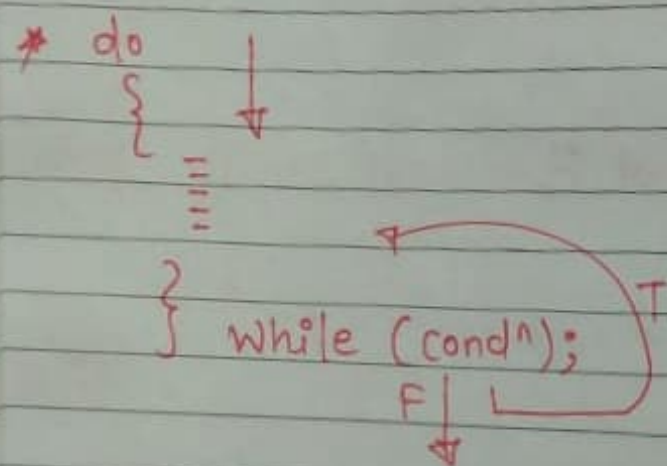 * do
{
}
while (condⁿ);
T
F